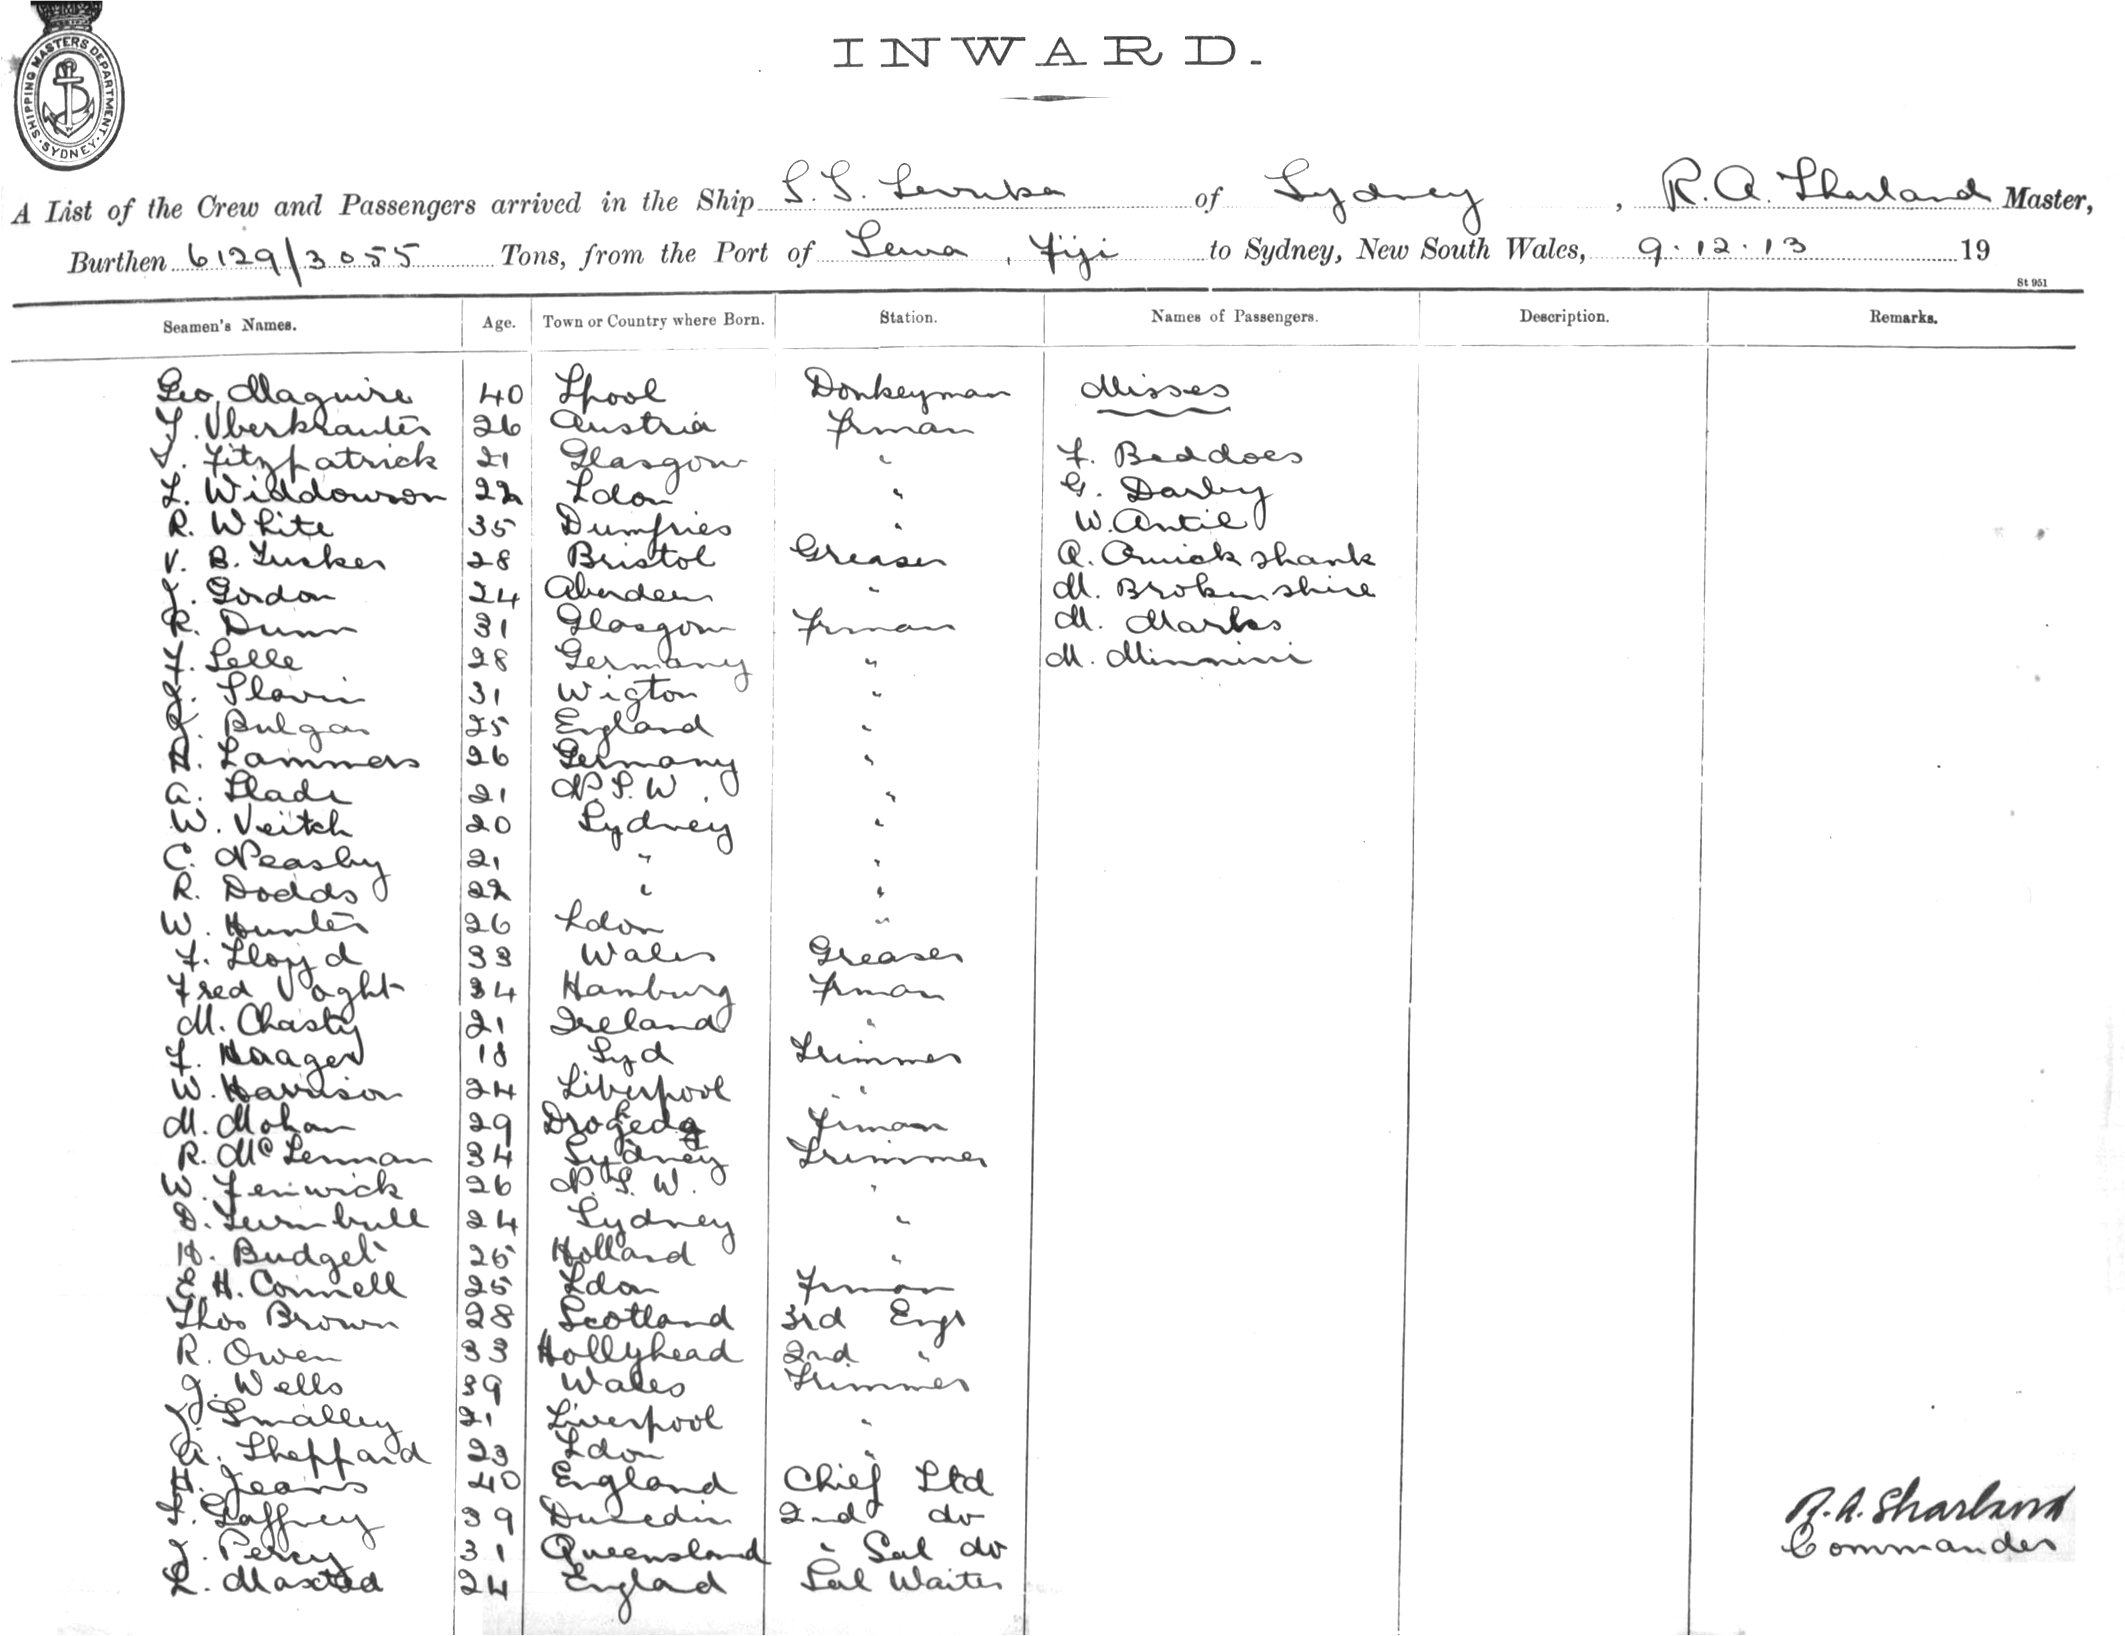 SHIPPING MASTERS DEPARTMENT. SYDNEY.
INWARD.
A List of the Crew and Passengers arrived in the Ship S.S. Levuka of Sydney, R. A. Sharland Master,
Burthen 6129/3055 Tons, from the Port of Suva, Fiji to Sydney, New South Wales, 9.12.13 19
St 951
Seamen's Names. Age. Town or Country where Born. Station. Names of Passengers. Description. Remarks.
Geo Maguire 40 Lpool Donkeyman Misses
26 Austria Frman
Fitzpatrick 21 Glasgow " F. Beddoes
L. Widdowson 22 Ldon " G. Darby
R. White 35 Dumfries " W. Antil
V. B. Tusker 28 Bristol Greaser A. Cruickshank
J. Gordon 24 Aberdeen " M. Brokenshire
R. Dunn 31 Glasgow Frman M. Marks
F. Selle 28 Germany " M. Minnini
J. Slavin 31 Wigton "
J. Bulgar 25 England "
H. Lammers 26 Germany "
A. Slade 21 N.S.W. "
W. Veitch 20 Sydney "
C. Neasby 21 " "
R. Dodds 22 " "
W. Hunter 26 Ldon "
F. Lloyd 33 Wales Greaser
Fred Voght 34 Hamburg Frman
M. Chasty 21 Ireland "
F. Haager 18 Syd Trimmer
W. Harrison 24 Liverpool "
M. Mohan 29 Drogeda Firman
R. McLennan 34 Sydney Trimmer
W. Fenwick 26 N.S.W. "
D. Turnbull 24 Sydney "
H. Budget 25 Holland "
E. H. Connell 25 Ldon Frman
Thos Brown 28 Scotland 3rd Engr
R. Owen 33 Hollyhead 2nd "
J. Wells 39 Wales Trimmer
J. Smalley 21 Liverpool "
A. Sheppard 23 Ldon "
H. Jeans 40 England Chief Std
Gaffney 39 Dunedin 2nd do
J. Percy 31 Queensland " Sal do
L. Maxted 24 Englad Sal Waiter
R. A. Sharland
Commander